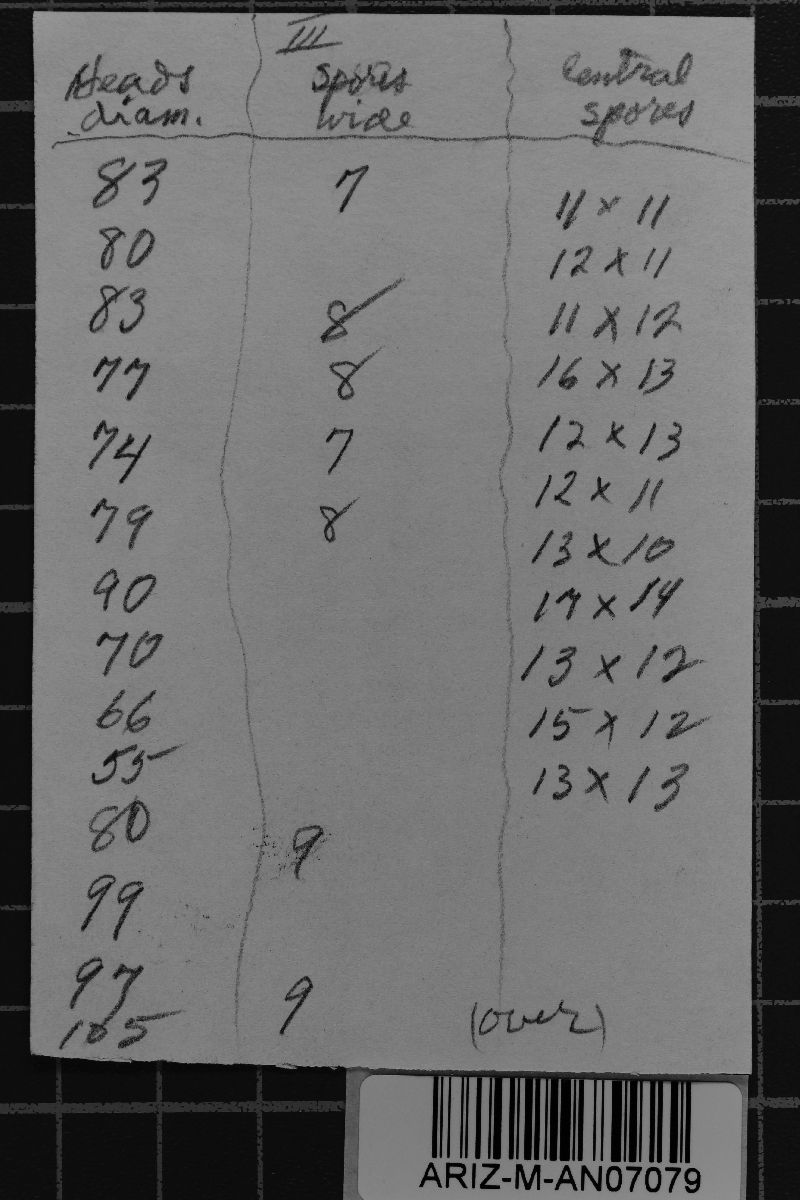 III
Heads Spores Central
diam. wide spores
83 7 11 x 11
80 12 x 11
83 8 11 x 12
77 8 16 x 13
74 7 12 x 13
79 8 12 x 11
90 13 x 10
70 17 x 14
66 13 x 12
55 15 x 12
80 9 13 x 13
99
97 9
105 (over)
ARIZ-M-AN07079